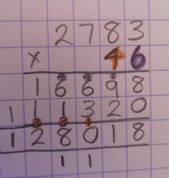 2783
× 46
16698
111320
128018
11